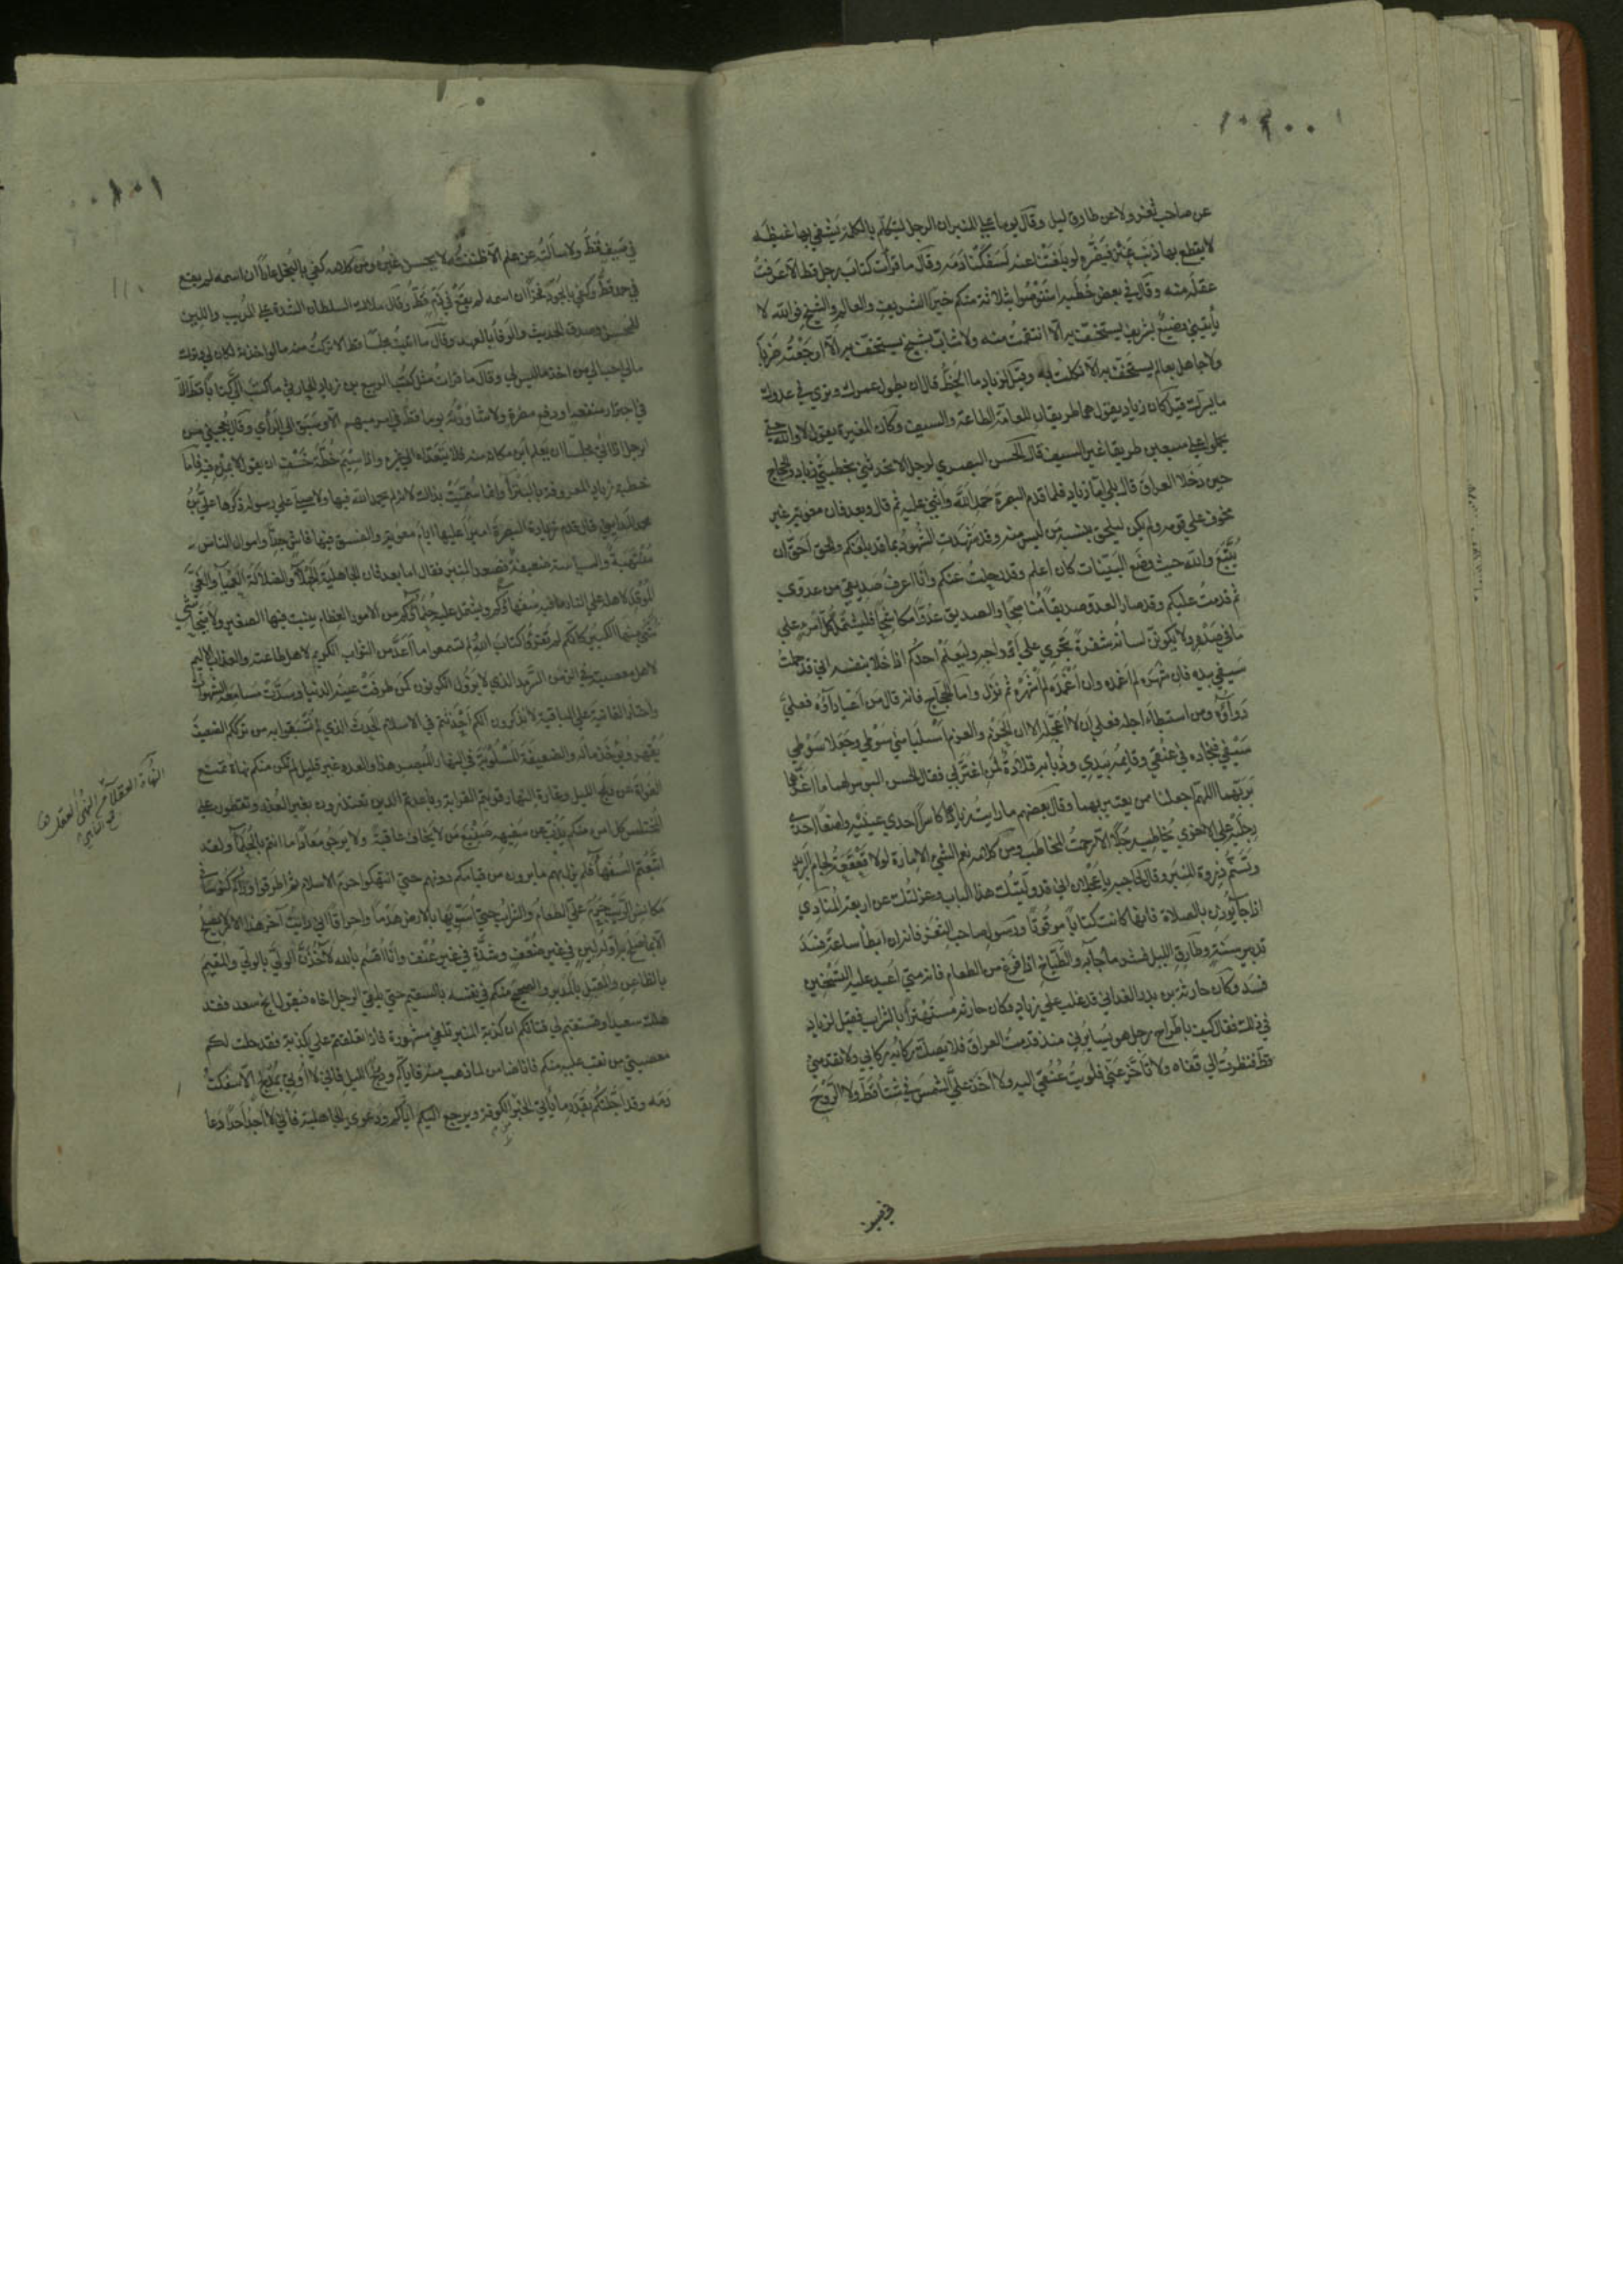 عن صاحب ثغر ولا عن طارق ليل وقال يوما على المنبر ان الرجل ليتكلم بالكلمة يشفي بها غيظه
لا يقطع بها ذنب عنز فيضره لو بلغتنا عنه لسفكنا دمه وقال ما قرأت كتاب رجل قط الا عرفت
عقله منه وقال في بعض خطبه استوصوا بثلاثة منكم خيرا الشريف والعالم والشيخ فوالله لا
يأتيني وضيع بشريف يستخف به الا انتقمت منه ولا شاب بشيخ يستخف به الا اوجعته ضربا
ولا جاهل بعالم يستخف به الا نكلت به وقيل لزياد ما الحظ قال ان يطول عمرك وترى في عدوك
ما يسرك قيل كان زياد يقول هما طريقان للعامة الطاعة والسيف وكان المغيرة يقول لا والله حتى
يحملوا على سبعين طريقا غير السيف قال الحسن البصري لرجل الا تحدثني بخطبتي زياد والحجاج
حين دخلا العراق قال بلى اما زياد فلما قدم البصرة حمد الله واثنى عليه ثم قال وبعد فان معوية غير
مخوف على قومه ولم يكن ليلحق بنسبه من ليس منه وقد شهدت الشهود بما قد بلغكم والحق احق ان
يتبع والله حيث وضع البينات كان اعلم وقد رحلت عنكم وانا اعرف صديقي من عدوي
ثم قدمت عليكم وقد صار العدو صديقا مناصحا والصديق عدوا مكاشحا فليشتمل كل امرئ على
ما في صدره ولا يكونن لسانه شفرة تجري على اوداجه وليعلم احدكم اذا خلا بنفسه اني قد حملت
سيفي بيده فان شهره لم اغمده وان اغمده لم اشهره ثم نزل واما الحجاج فانه قال من اعياه داؤه فعليّ
دواؤه ومن استبطأ اجله فعلي ان لا اعجله الا ان الحزم والعزم استلبا مني سوطي وجعلا سوطي
سيفي فنجاده في عنقي وقائمه بيدي وذبابه قلادة لمن اغتر بي فقال الحسن البوس لهما ما اغرهما
بربهما اللهم اجعلنا ممن يعتبر بهما وقال بعضهم ما رايت زيادا كاسرا احدى عينيه واضعا احدى
رجليه على الاخرى يخاطب رجلا الا رحمت المخاطب ومن كلامه نعم الشيء الامارة لولا قعقعة لجام البريد
وتسنم ذروة المنبر وقال لحاجبه يا عجلان اني قد وليتك هذا الباب وعزلتك عن اربعة المنادي
اذا جاء يؤذن بالصلاة فانها كانت كتابا موقوتا ورسول صاحب الثغر فانه ان ابطأ ساعة فسد
تدبير سنة وطارق الليل لشر ما جاء به والطباخ اذا فرغ من الطعام فانه متى اعيد عليه التسخين
فسد وكان حارثة بن بدر الغداني قد غلب على زياد وكان حارثة مستهترا بالشراب فقيل لزياد
في ذلك فقال كيف باطراح رجل هو يسايرني منذ قدمت العراق فلا يصك ركابه ركابي ولا تقدمني
قط فنظرت الى قفاه ولا تأخر عني فلويت عنقي اليه ولا اخذ علي الشمس في شتاء قط ولا الروح
في صيف
في صيف قط ولا سألته عن علم الا ظننته لا يحسن غيره ومن كلامه كفى بالبخل عارا ان اسمه لم يقع
في حمد قط وكفى بالجود فخرا ان اسمه لم يقع في ذم قط وقال ملاك السلطان الشدة على المريب واللين
للمحسن وصدق الحديث والوفا بالعهد وقال ما اتيت مجلسا قط الا تركت منه ما لو اخذته لكان لي وترك
ما لي احب الي من اخذ ما ليس لي وقال ما قرأت مثل كتب الربيع بن زياد الحارثي ما كتب الي كتابا قط الا
في اجترار منفعة او دفع مضرة ولا شاورته يوما قط في امر مبهم الا وسبق الى الرأي وقال يعجبني من
الرجل اذا اتى مجلسا ان يعلم اين مكانه منه فلا يتعداه الى غيره واذا سيم خطة خسف ان يقول لا بملء فيه فاما
خطبة زياد المعروفة بالبتراء وانما سميت بذلك لانه لم يحمد الله فيها ولا صلى على رسوله ذكرها علي بن
محمد المدايني قال قدم زياد البصرة اميرا عليها ايام معوية والفسق فيها فاش جدا واموال الناس
منتهبة والسياسة ضعيفة فصعد المنبر فقال اما بعد فان الجاهلية الجهلاء والضلالة العمياء والغي
الموقد لاهله على النار ما فيه سفهاؤكم ويشتمل عليه حلماؤكم من الامور العظام ينبت فيها الصغير ولا يتحاشى
منها الكبير كانكم لم تقرؤا كتاب الله ولم تسمعوا ما اعد من الثواب الكريم لاهل طاعته والعذاب الاليم
لاهل معصيته في الزمن السرمد الذي لا يزول اتكونون كمن طرفت عينه الدنيا وسدت مسامعه الشهوات
واختار الفانية على الباقية لا تذكرون انكم احدثتم في الاسلام الحدث الذي لم تسبقوا به من ترككم الضعيف
يقهر ويؤخذ ماله والضعيفة المسلوبة في النهار المبصر هذا والعدد غير قليل الم تكن منكم نهاة تمنع
الغواة عن دلج الليل وغارة النهار قربتم القرابة وباعدتم الدين تعتذرون بغير العذر وتغطون على
المختلس كل امرئ منكم يذب عن سفيهه صنيع من لا يخاف عاقبة ولا يرجو معادا ما انتم بالحلماء ولقد
اتبعتم السفهاء فلم يزل بهم ما يرون من قيامكم دونهم حتى انتهكوا حرم الاسلام ثم اطرقوا وراءكم كنوسا في
مكانس الريب حرم علي الطعام والشراب حتى اسويها بالارض هدما واحراقا اني رايت آخر هذا الامر لا يصلح
الا بما صلح به اوله لين في غير ضعف وشدة في غير عنف وانا اقسم بالله لآخذن الولي بالولي والمقيم
بالظاعن والمقبل بالمدبر والصحيح منكم في نفسه بالسقيم حتى يلقى الرجل اخاه فيقول انج سعد فقد
هلك سعيد او تستقيم لي قناتكم ان كذبة المنبر تلفى مشهورة فاذا تعلقتم علي بكذبة فقد حلت لكم
معصيتي من نقب عليه منكم فانا ضامن لما ذهب منه فاياكم ودلج الليل فاني لا اوتى بمدلج الا سفكت
دمه وقد اجلتكم بقدر ما ياتي الخبر الكوفة ويرجع اليكم اياكم ودعوى الجاهلية فاني لا اجد احدا دعا